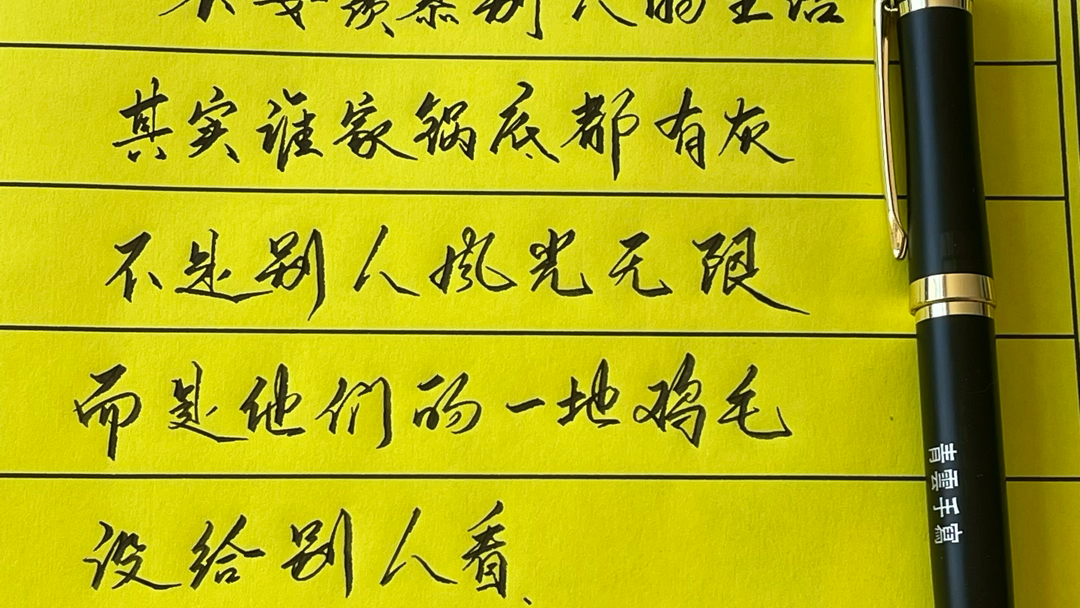 不要羡慕别人的生活
其实谁家锅底都有灰
不是别人风光无限
而是他们的一地鸡毛
没给别人看、
青雲手寫